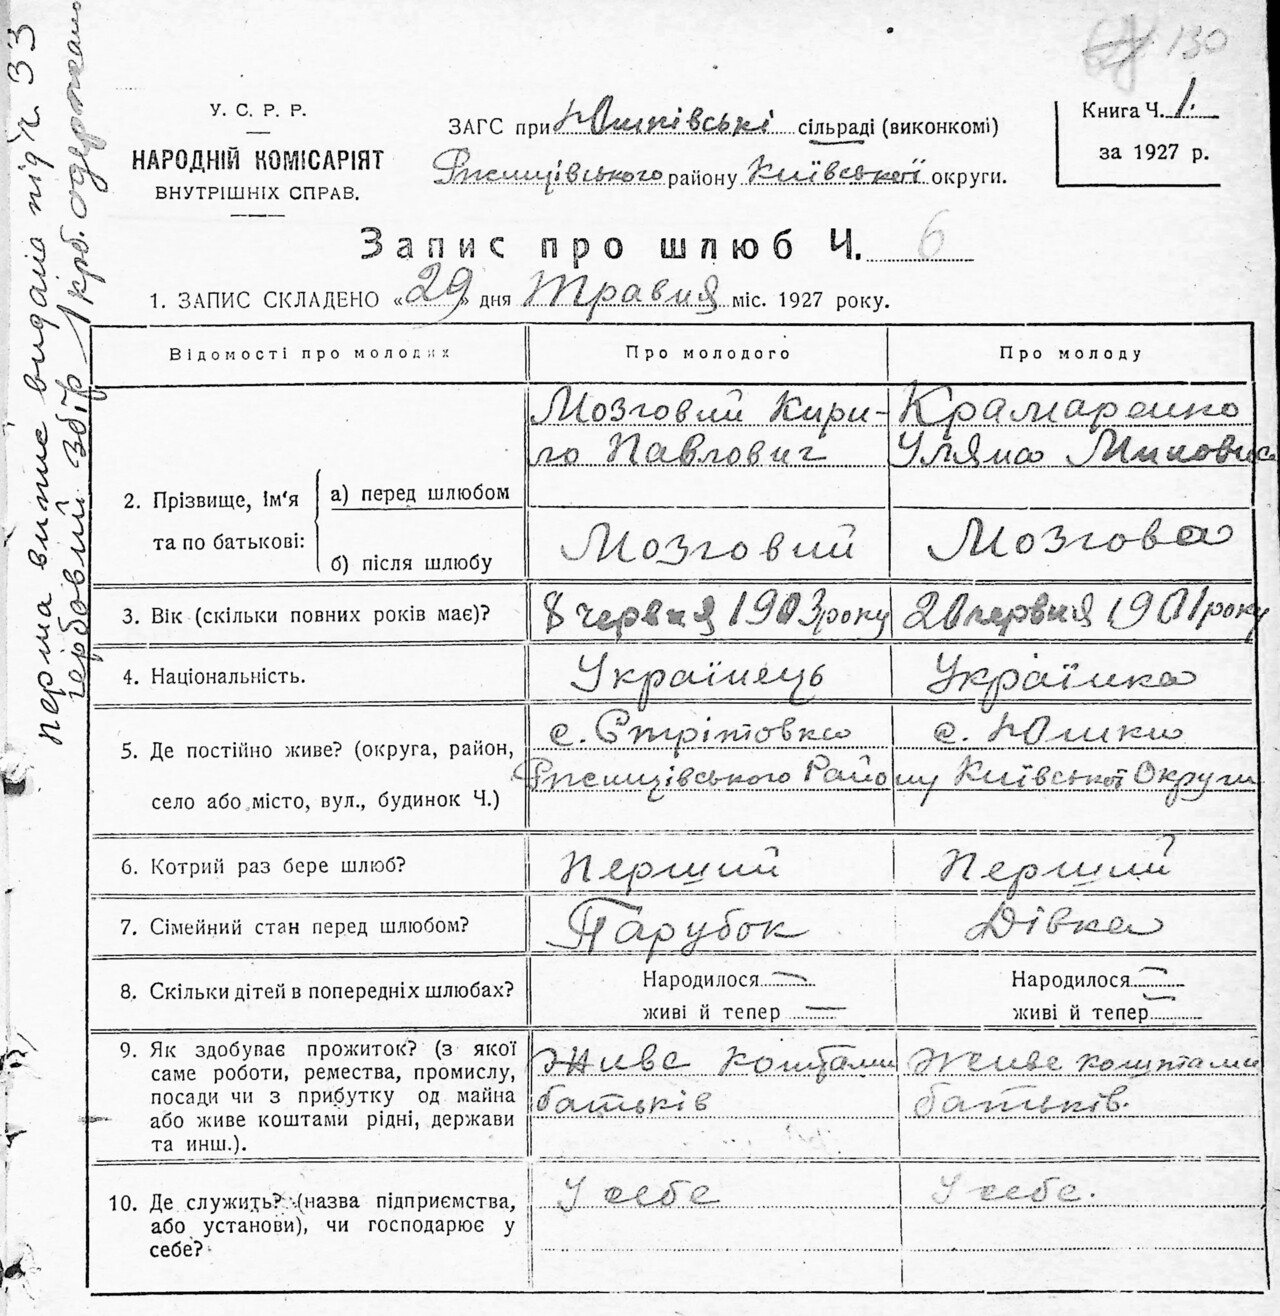 130
У. С. Р. Р.
НАРОДНІЙ КОМІСАРІЯТ
ВНУТРІШНІХ СПРАВ.
ЗАГС при Юшківські сільраді (виконкомі)
Ржищівського району Київської округи.
Книга Ч. 1.
за 1927 р.
Запис про шлюб Ч. 6
1. ЗАПИС СКЛАДЕНО «29» дня Травня міс. 1927 року.
Відомості про молодих
Про молодого
Про молоду
2. Прізвище, ім'я
та по батькові:
а) перед шлюбом
Мозговий Кири-
ло Павлович
Крамаренко
Уляна
б) після шлюбу
Мозговий
Мозгова
3. Вік (скільки повних років має)?
8 червня 1903 року
20 червня 1901 року
4. Національність.
Українець
Українка
5. Де постійно живе? (округа, район,
село або місто, вул., будинок Ч.)
с. Стрітовка
с. Юшки
Ржищівського Району Київської Округи
6. Котрий раз бере шлюб?
Перший
Перший
7. Сімейний стан перед шлюбом?
Парубок
Дівка
8. Скільки дітей в попередніх шлюбах?
Народилося —
живі й тепер —
Народилося —
живі й тепер —
9. Як здобуває прожиток? (з якої
саме роботи, ремества, промислу,
посади чи з прибутку од майна
або живе коштами рідні, держави
та инш.).
Живе коштами
батьків
Живе коштами
батьків.
10. Де служить? (назва підприємства,
або установи), чи господарює у
себе?
У себе
У себе.
перша випис видана під ч 33
гербовий збір 1 крб. одержано